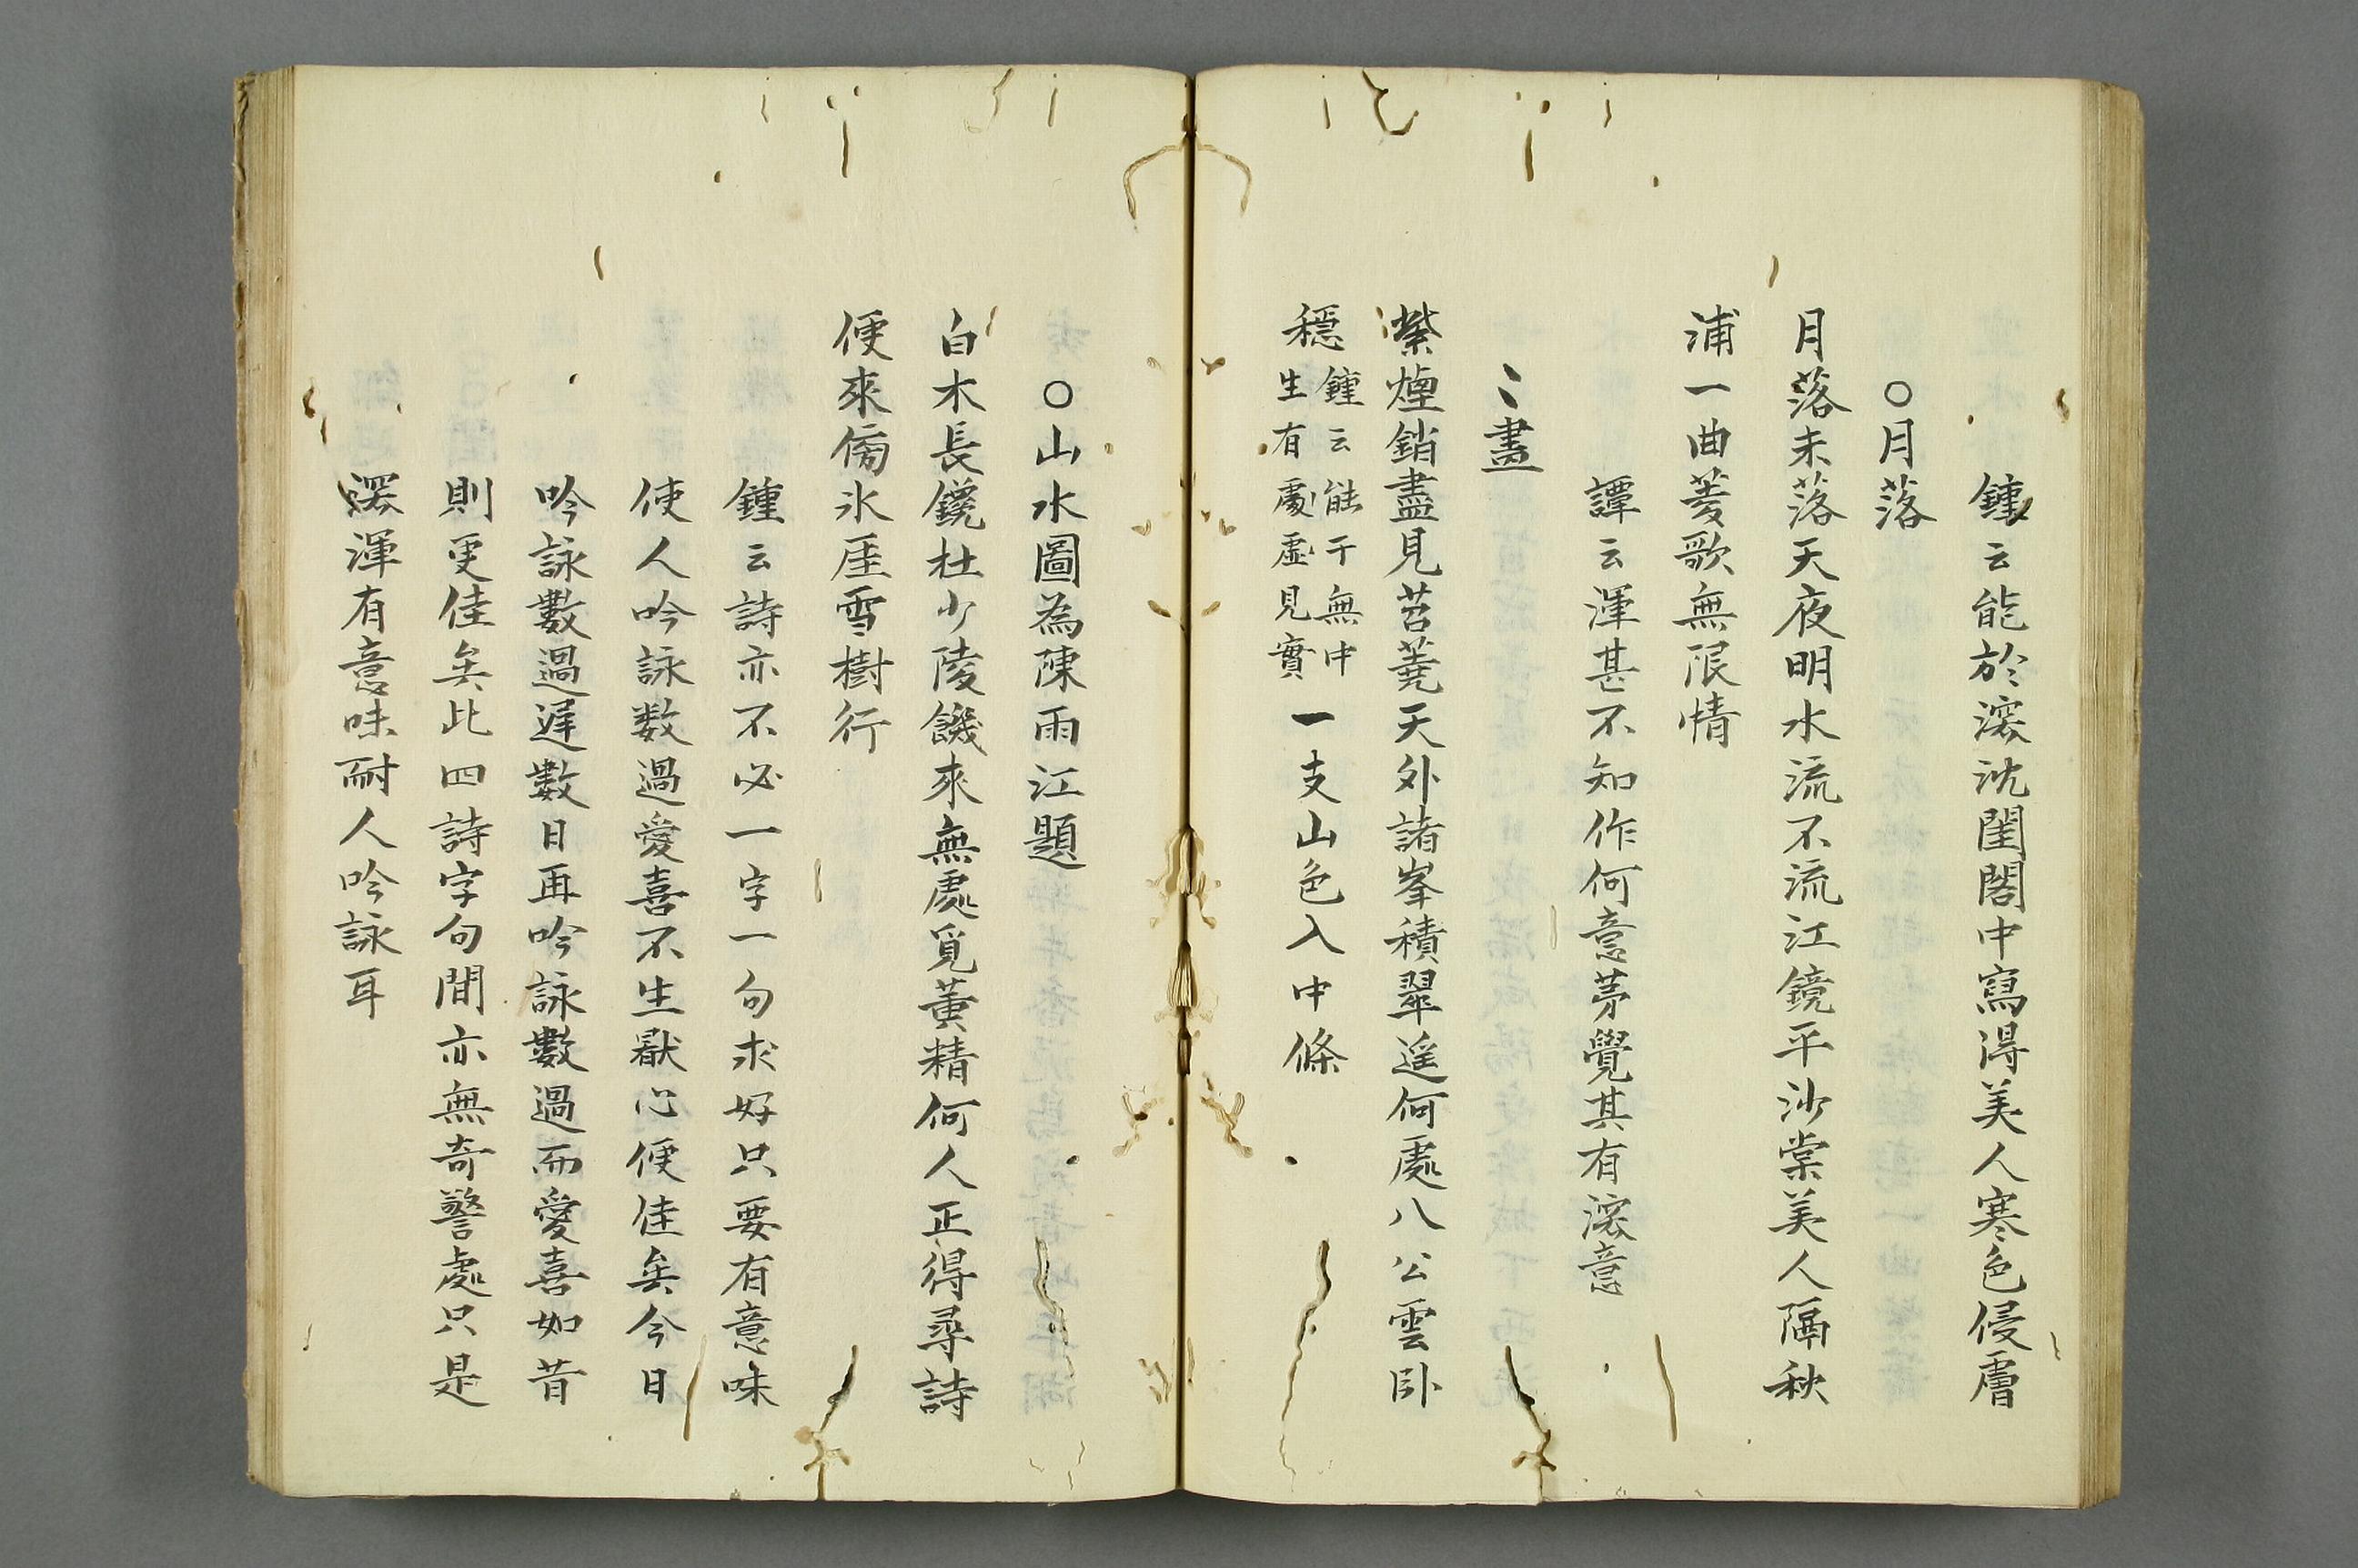 鍾云能於深沈閨閣中寫得美人寒色侵膚
○月落
月落未落天夜明水流不流江鏡平沙棠美人隔秋
浦一曲菱歌無限情
譚云渾甚不知作何意茅覺其有深意
〻畫
紫煙銷盡見苕蕘天外諸峯積翠遥何處八公雲卧
穏
鍾云能于無中
生有處虛見實
一支山色入中條
○山水圖為陳雨江題
白木長鑱杜少陵饑來無處覓黃精何人正得尋詩
便來傍氷厓雪樹行
鍾云詩亦不必一字一句求好只要有意味
使人吟詠数過愛喜不生厭心便佳矣今日
吟詠數過遲數日再吟詠數過而愛喜如昔
則更佳矣此四詩字句間亦無奇警處只是
深渾有意味耐人吟詠耳